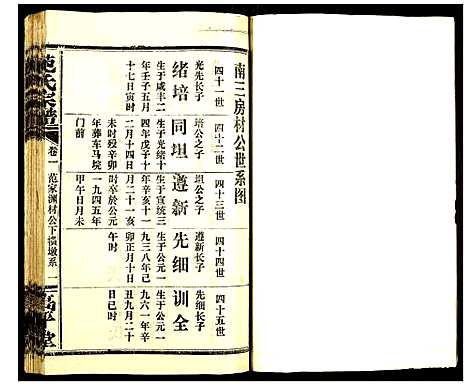 南三房村公世系图
四十一世
光先长子
绪培
生于咸丰二
年壬子五月
十七日寅时
四十二世
培公之子
同坦
生于光绪十
四年戊子十
二月十四日
未时殁辛卯
年葬车马垸
门前
四十三世
坦公之子
遵新
生于宣统三
年辛亥十一
月二十一亥
时卒于公元
一九四五年
甲午日月未
四十四世
遵新长子
先细
生于公元一
九三八年己
卯正月十日
午时
四十五世
先细长子
训全
生于公元一
九六一年辛
丑九月二十
日己时
范氏宗谱
卷一
范家渊村公下横墩系
一
高平堂